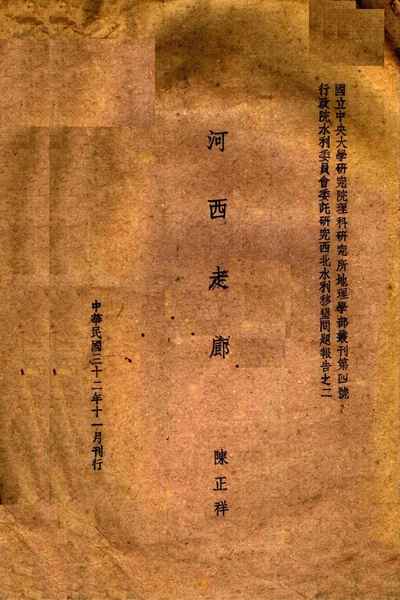 國立中央大學研究院理科研究所地理學部叢刊第四號
行政院水利委員會委託研究西北水利移墾問題報告之二
河西走廊
陳正祥
中華民國三十二年十一月刊行